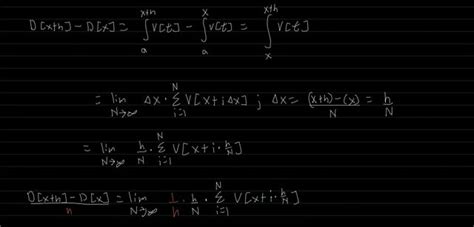 D[x+h] - D[x] = ∫_a^{x+h} V[t] - ∫_a^x V[t] = ∫_x^{x+h} V[t]
= lim_{N→∞} Δx · Σ_{i=1}^N V[x+iΔx] ; Δx = (x+h)-(x)/N = h/N
= lim_{N→∞} h/N · Σ_{i=1}^N V[x+i·h/N]
D[x+h] - D[x]/h = lim_{N→∞} 1/h · h/N · Σ_{i=1}^N V[x+i·h/N]